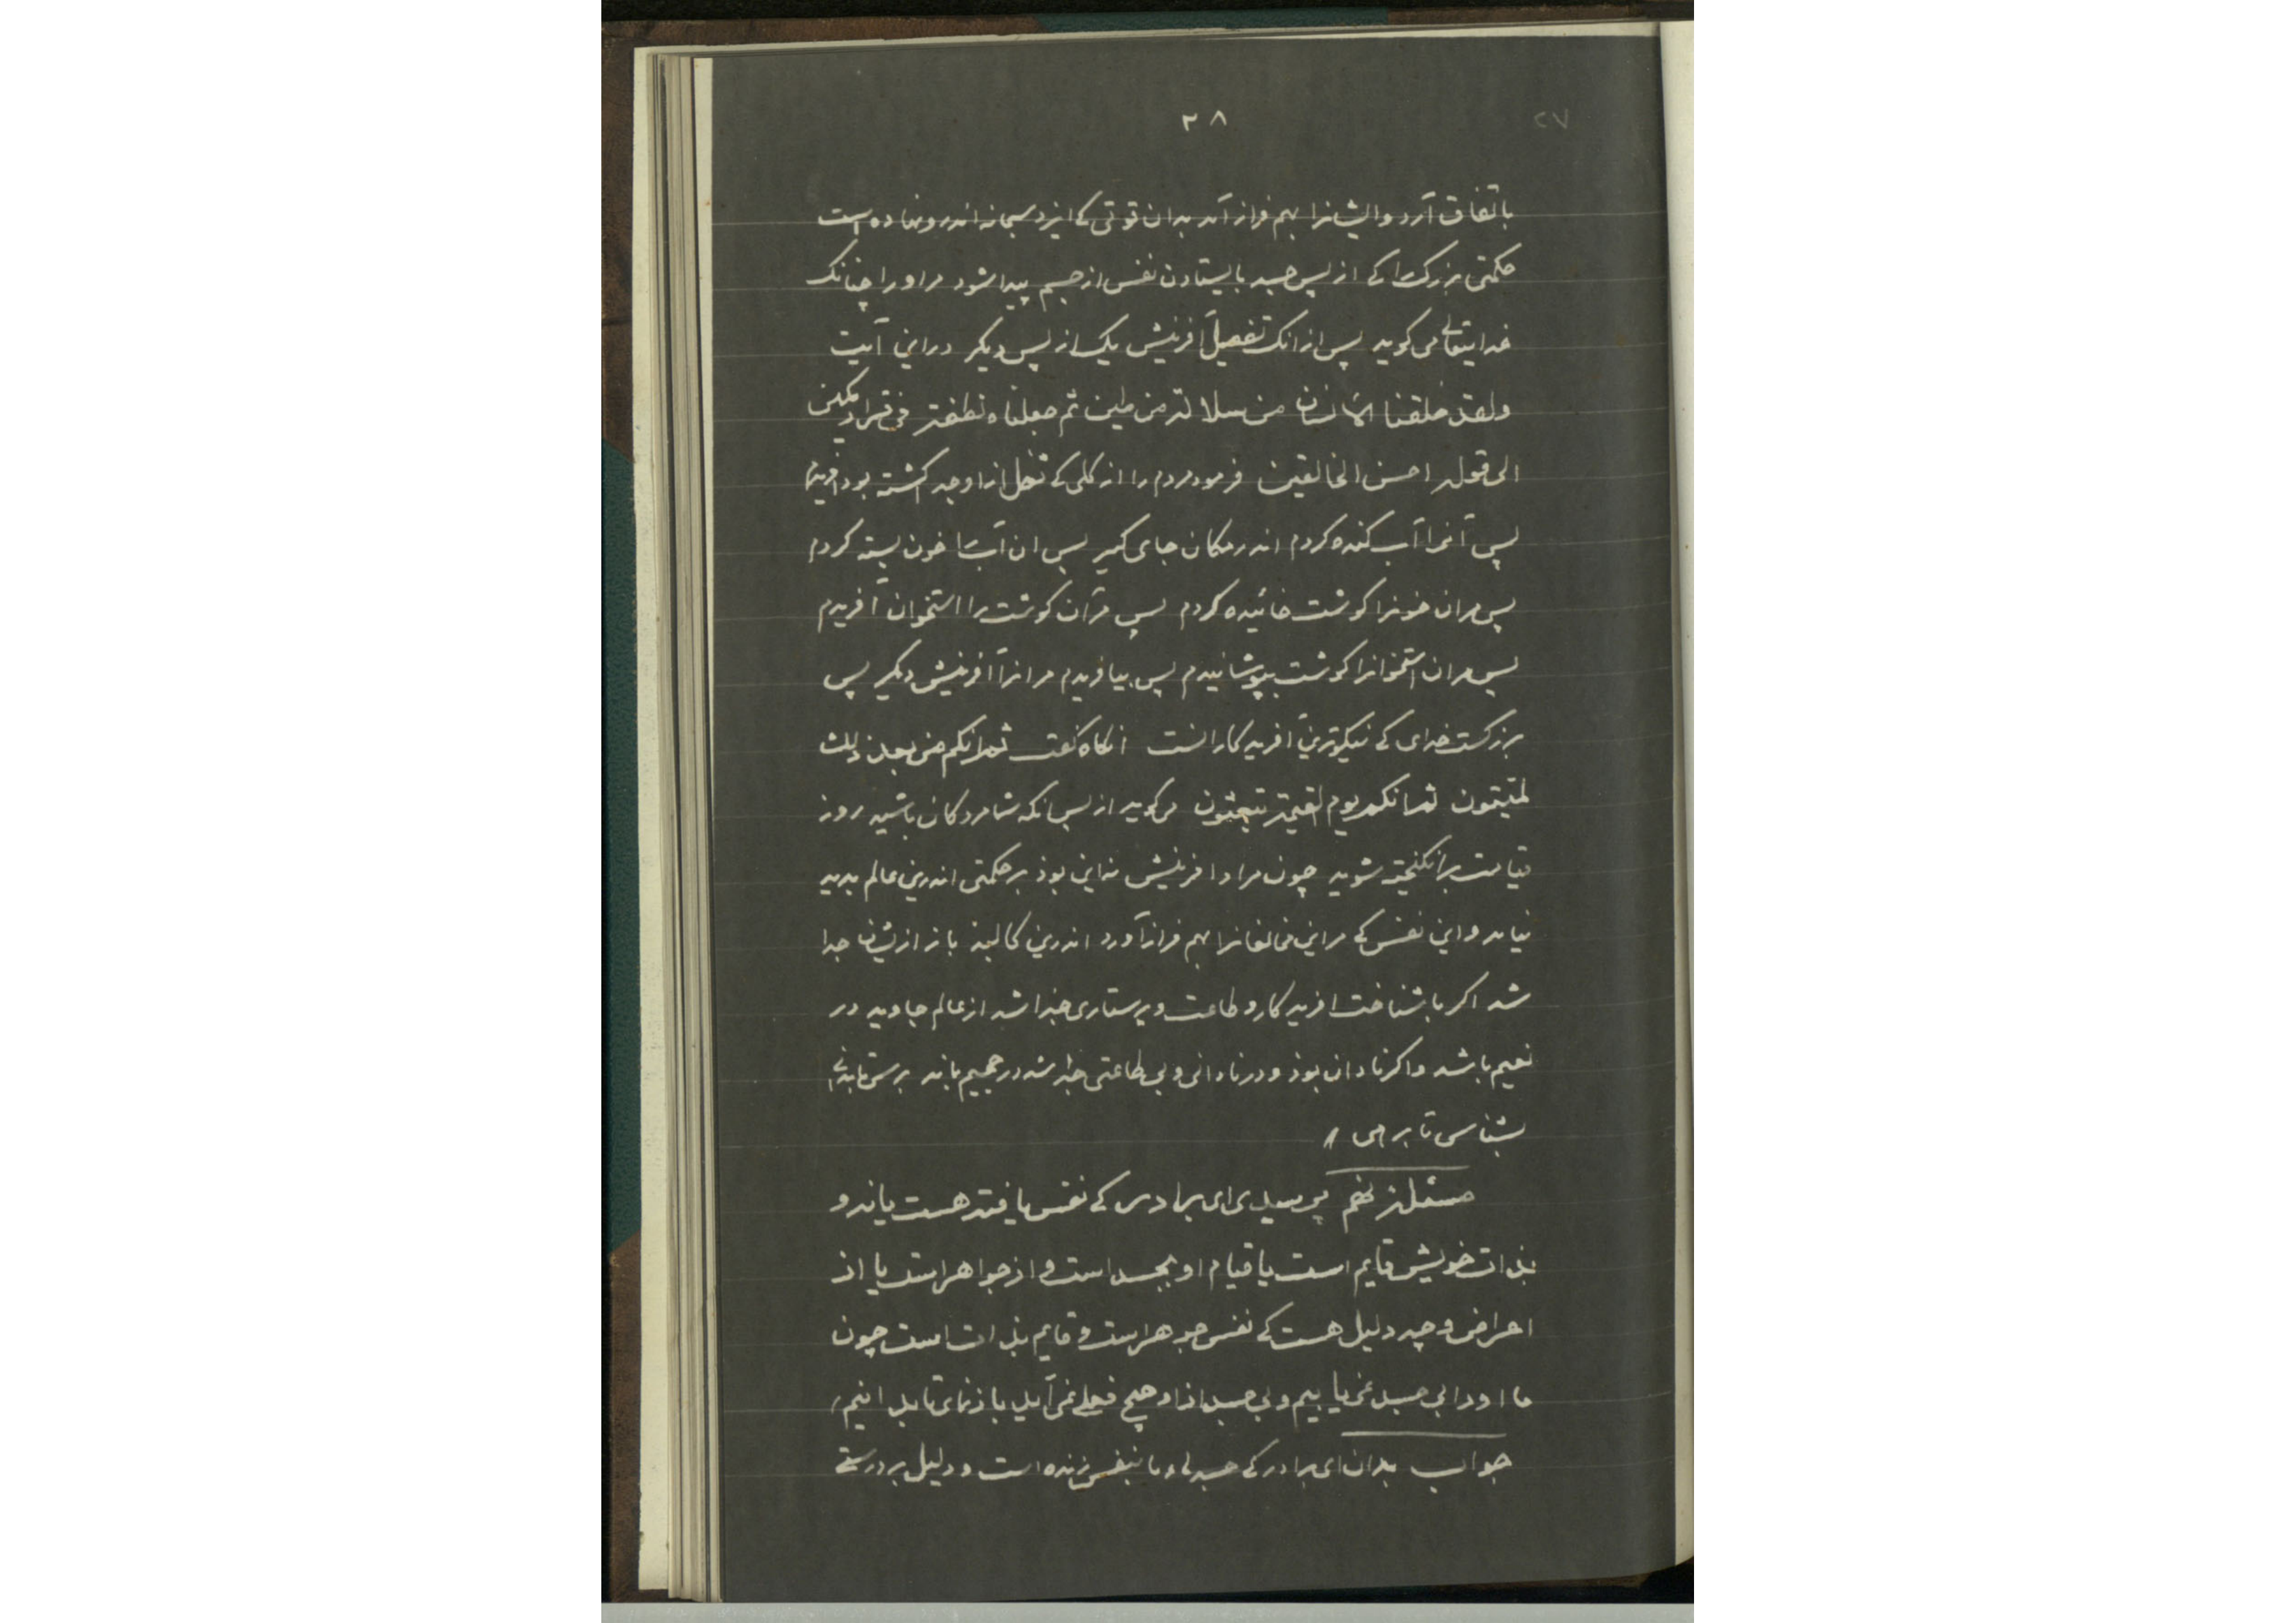 ۲۸
۲۷
باتفاق آرد و ایشانرا بهم فراز آمد بدان قوتی کے ایزد سبحانه اندرو نهاده است
حکمتی بزرگ را کے از پس جسد بایستادن نفس از جسم پیدا شود مر او را چنانک
خدایتعالی می کوید پس از انک تفصیل آفرینش یک از پس دیکر دراین آیت
ولقد خلقنا الانسان من سلالة من طین ثم جعلناه نطفة فی قرار مکین
الی قوله احسن الخالقین فرمود مردم را از کلی کے از او جد کشته بود آفریدم
پس آنرا آب کنده کردم اندر مکان جای کیر پس ان آب را خون بسته کردم
پس مران خونرا کوشت خائیده کردم پس مر آن کوشت را استخوان آفریدم
پس مران استخوانرا کوشت بپوشانیدم پس بیافریدم مرانرا آفرینش دیکر پس
بزرکست خدای کے نیکوترین آفریدکارانست انکاه کفت ثم انکم من بعد ذلک
لمیتون ثم انکم یوم القیمة تبعثون می کوید از پس انکه شما مردکان باشید روز
قیامت برانکیخته شوید چون مراد افرینش نه این بوذ بر حکمتی اندرین عالم بدید
نیامد و این نفس کے مر این مخالفانرا بهم فراز آورد اندرین کالبذ باز ازیشان جدا
شد اکر با شناخت افریدکار و طاعت و پرستاری جدا شد از عالم جاوید در
نعیم باشد و اکر نادان بوذ و در نادانی و بی طاعتی جدا شد در جحیم بماند
بشناسی تا برهی
مسئلة نهم پرسیدی ای برادر کے نفس یافته هست یا نه و
بذات خویش قایم است یا قیام او بجسد است و از جواهر است یا از
اعراض و چه دلیل هست کے نفس جوهر است و قایم بذات است چون
ما اورا بی جسد نمی یابیم و بی جسد ازاو هیچ فعلے نمی آید باز نمای تا بدانیم
جواب بدان ای برادر کے جسد ما بنفس زنده است و دلیل بر درستی